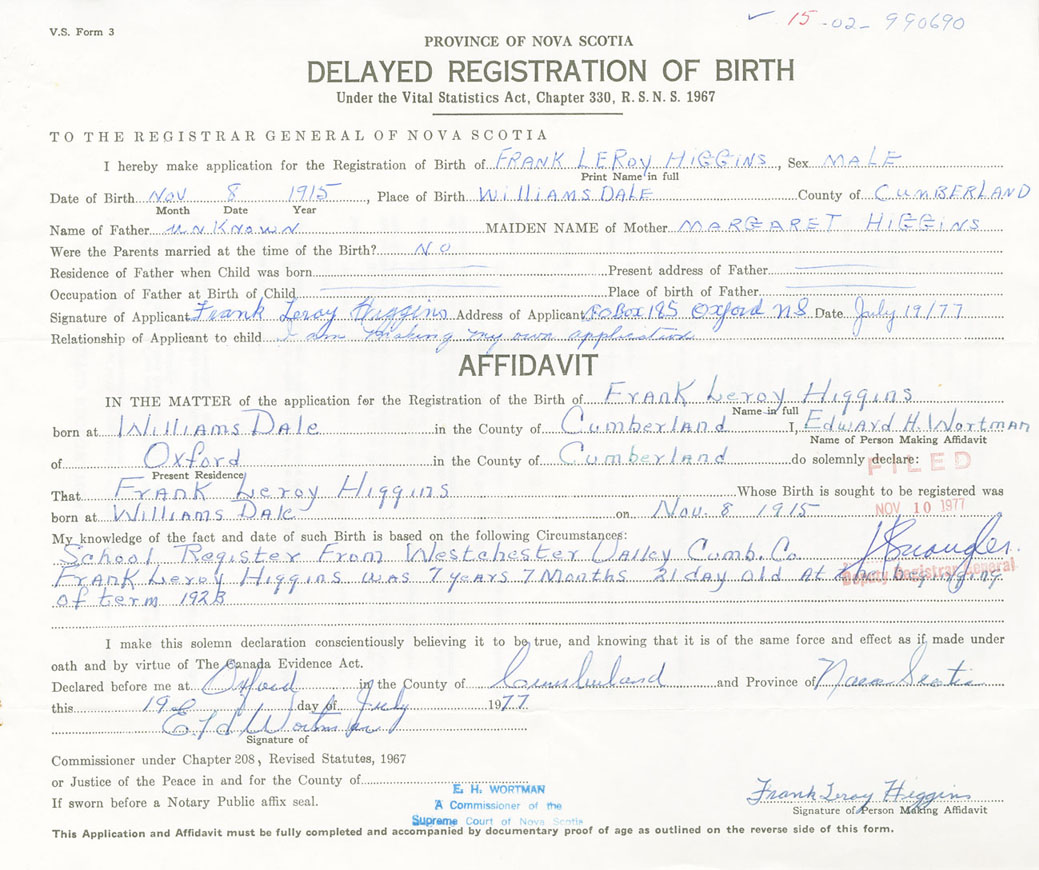 V.S. Form 3
✓ 15-02-990690
PROVINCE OF NOVA SCOTIA
DELAYED REGISTRATION OF BIRTH
Under the Vital Statistics Act, Chapter 330, R. S. N. S. 1967
TO THE REGISTRAR GENERAL OF NOVA SCOTIA
I hereby make application for the Registration of Birth of FRANK LEROY HIGGINS, Sex MALE
Print Name in full
Date of Birth NOV 8 1915, Place of Birth WILLIAMS DALE County of CUMBERLAND
Month Date Year
Name of Father UNKNOWN MAIDEN NAME of Mother MARGARET HIGGINS
Were the Parents married at the time of the Birth? NO
Residence of Father when Child was born Present address of Father
Occupation of Father at Birth of Child Place of birth of Father
Signature of Applicant Frank Leroy Higgins Address of Applicant P.O Box 185 Oxford NS Date July 19/77
Relationship of Applicant to child I am making my own application
AFFIDAVIT
IN THE MATTER of the application for the Registration of the Birth of Frank Leroy Higgins
Name in full
born at Williams Dale in the County of Cumberland I, Edward H. Wortman
Name of Person Making Affidavit
of Oxford in the County of Cumberland do solemnly declare:
Present Residence
FILED
That Frank Leroy Higgins Whose Birth is sought to be registered was
NOV 10 1977
born at Williams Dale on Nov. 8 1915
My knowledge of the fact and date of such Birth is based on the following Circumstances:
School Register From Westchester Valley Cumb. Co.
Frank Leroy Higgins was 7 years 7 Months 21 day old At the Beginging
Deputy Registrar General
of term 1923
I make this solemn declaration conscientiously believing it to be true, and knowing that it is of the same force and effect as if made under
oath and by virtue of The Canada Evidence Act.
Declared before me at Oxford in the County of Cumberland and Province of Nova Scotia
this 19 day of July 1977
E H Wortman
Signature of
Commissioner under Chapter 208, Revised Statutes, 1967
or Justice of the Peace in and for the County of
E. H. WORTMAN
If sworn before a Notary Public affix seal.
A Commissioner of the
Supreme Court of Nova Scotia
Frank Leroy Higgins
Signature of Person Making Affidavit
This Application and Affidavit must be fully completed and accompanied by documentary proof of age as outlined on the reverse side of this form.